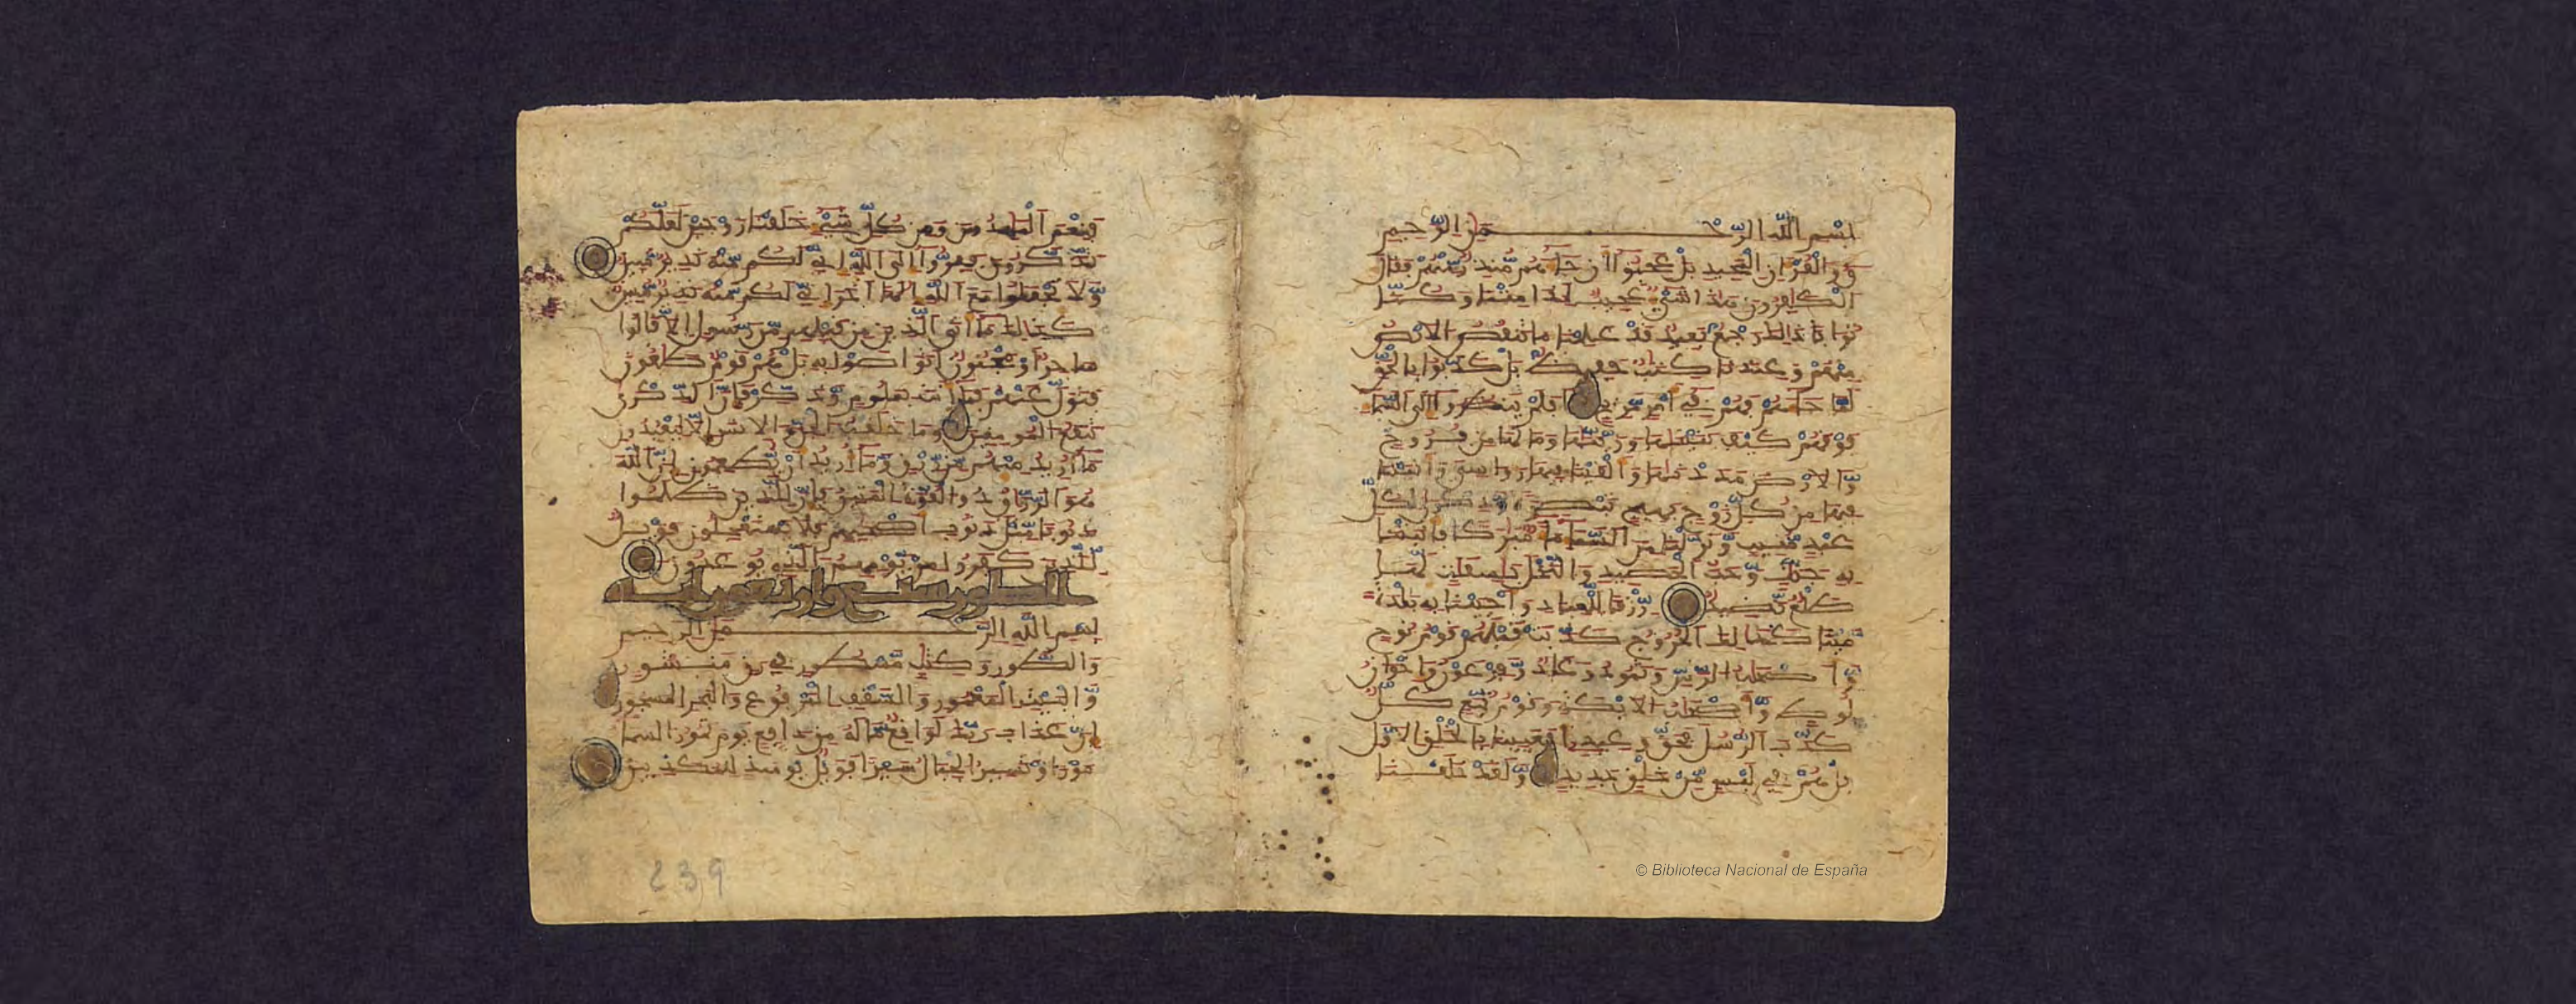 بسم الله الرحمن الرحيم
ق والقران المجيد بل عجبوا ان جاهم منذر منهم فقال
الكفرون هذا شي عجيب اذا متنا وكنا
ترابا ذلك رجع بعيد قد علمنا ما تنقص الارض
منهم وعندنا كتب حفيظ بل كذبوا بالحق
لما جاهم فهم في امر مريج افلم ينظروا الى السما
فوقهم كيف بنينها وزينها وما لها من فروج
والارض مددنها والقينا فيها روسي وانبتنا
فيها من كل زوج بهيج تبصرة وذكرى لكل
عبد منيب ونزلنا من السما ما مبركا فانبتنا
به جنت وحب الحصيد والنخل باسقت لها
طلع نضيد رزقا للعباد واحيينا به بلدة
ميتا كذلك الخروج كذبت قبلهم قوم نوح
واصحب الرس وثمود وعاد وفرعون واخون
لوط واصحب الايكة وقوم تبع كل
كذب الرسل فحق وعيد افعيينا بالخلق الاول
بل هم في لبس من خلق جديد ولقد خلقنا
فنعم المهدون ومن كل شي خلقنا زوجين لعلكم
تذكرون ففروا الى الله اني لكم منه نذير مبين
ولا تجعلوا مع الله الها اخر اني لكم منه نذير مبين
كذلك ما اتى الذين من قبلهم من رسول الا قالوا
ساحر او مجنون اتواصوا به بل هم قوم طاغون
فتول عنهم فما انت بملوم وذكر فان الذكرى
تنفع المومنين وما خلقت الجن والانس الا ليعبدون
ما اريد منهم من رزق وما اريد ان يطعمون ان الله
هو الرزاق ذو القوة المتين فان للذين ظلموا
ذنوبا مثل ذنوب اصحبهم فلا يستعجلون فويل
للذين كفروا من يومهم الذي يوعدون
الطور سبع واربعون اية
بسم الله الرحمن الرحيم
والطور وكتب مسطور في رق منشور
والبيت المعمور والسقف المرفوع والبحر المسجور
ان عذاب ربك لوقع ما له من دافع يوم تمور السما
مورا وتسير الجبال سيرا فويل يومئذ للمكذبين
239
© Biblioteca Nacional de España